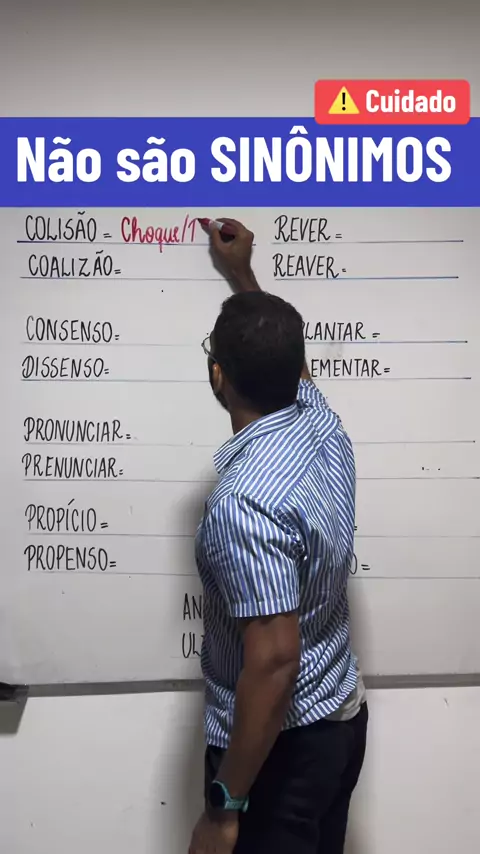 ⚠️ Cuidado
Não são SINÔNIMOS
COLISÃO = Choque/
COALIZÃO=
CONSENSO=
DISSENSO=
PRONUNCIAR=
PRENUNCIAR=
PROPÍCIO=
PROPENSO=
REVER =
REAVER=
LANTAR =
EMENTAR=
O=
AN
UL